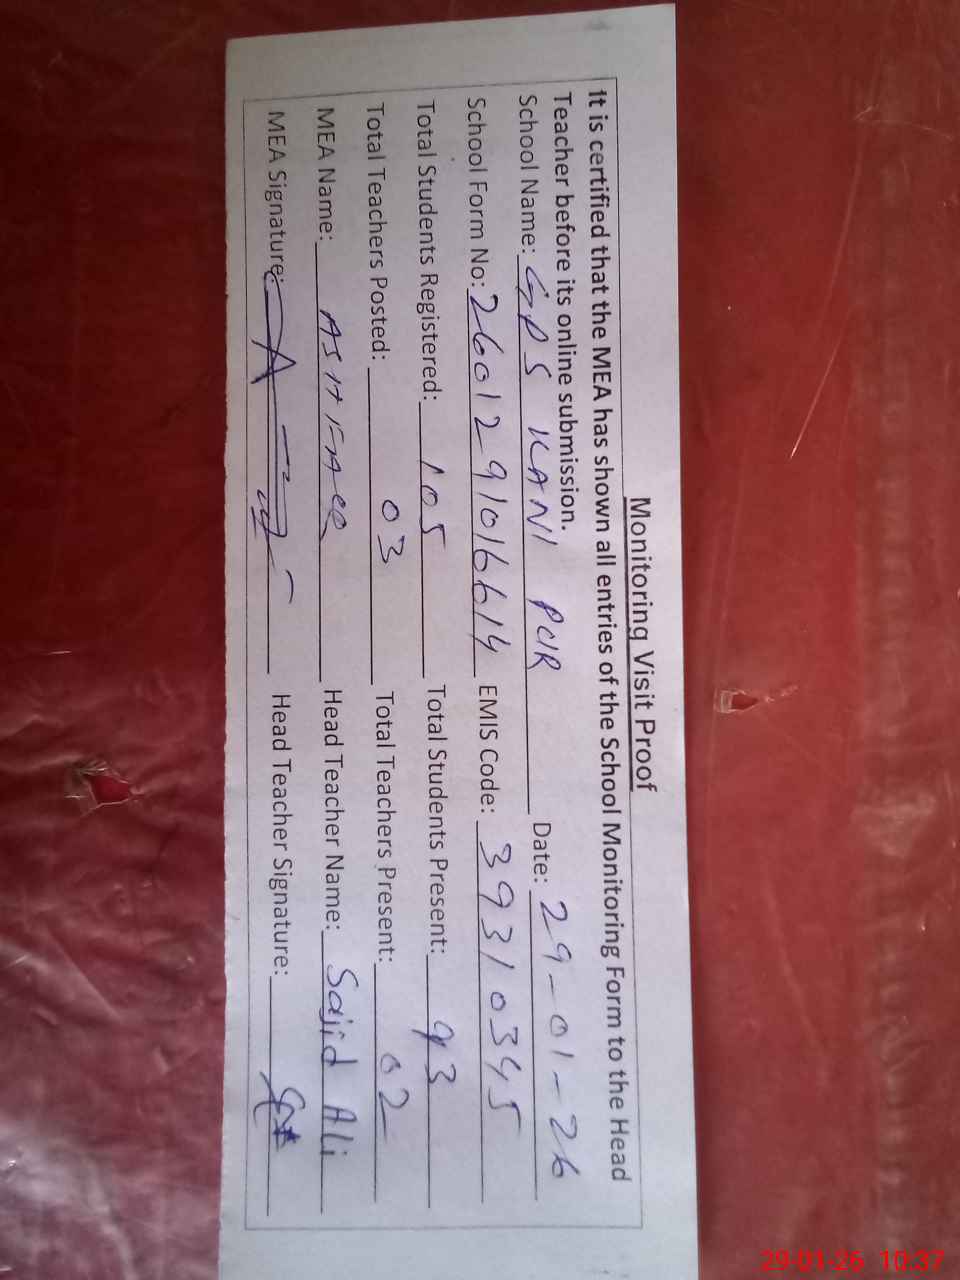 Monitoring Visit Proof
It is certified that the MEA has shown all entries of the School Monitoring Form to the Head
Teacher before its online submission.
School Name: GPS KANI PCIR Date: 29-01-26
School Form No: 260129101661 4 EMIS Code: 39310345
Total Students Registered: 105 Total Students Present: 93
Total Teachers Posted: 03 Total Teachers Present: 02
MEA Name: Head Teacher Name: Sajid Ali
MEA Signature: Head Teacher Signature:
29-01-26 10:37